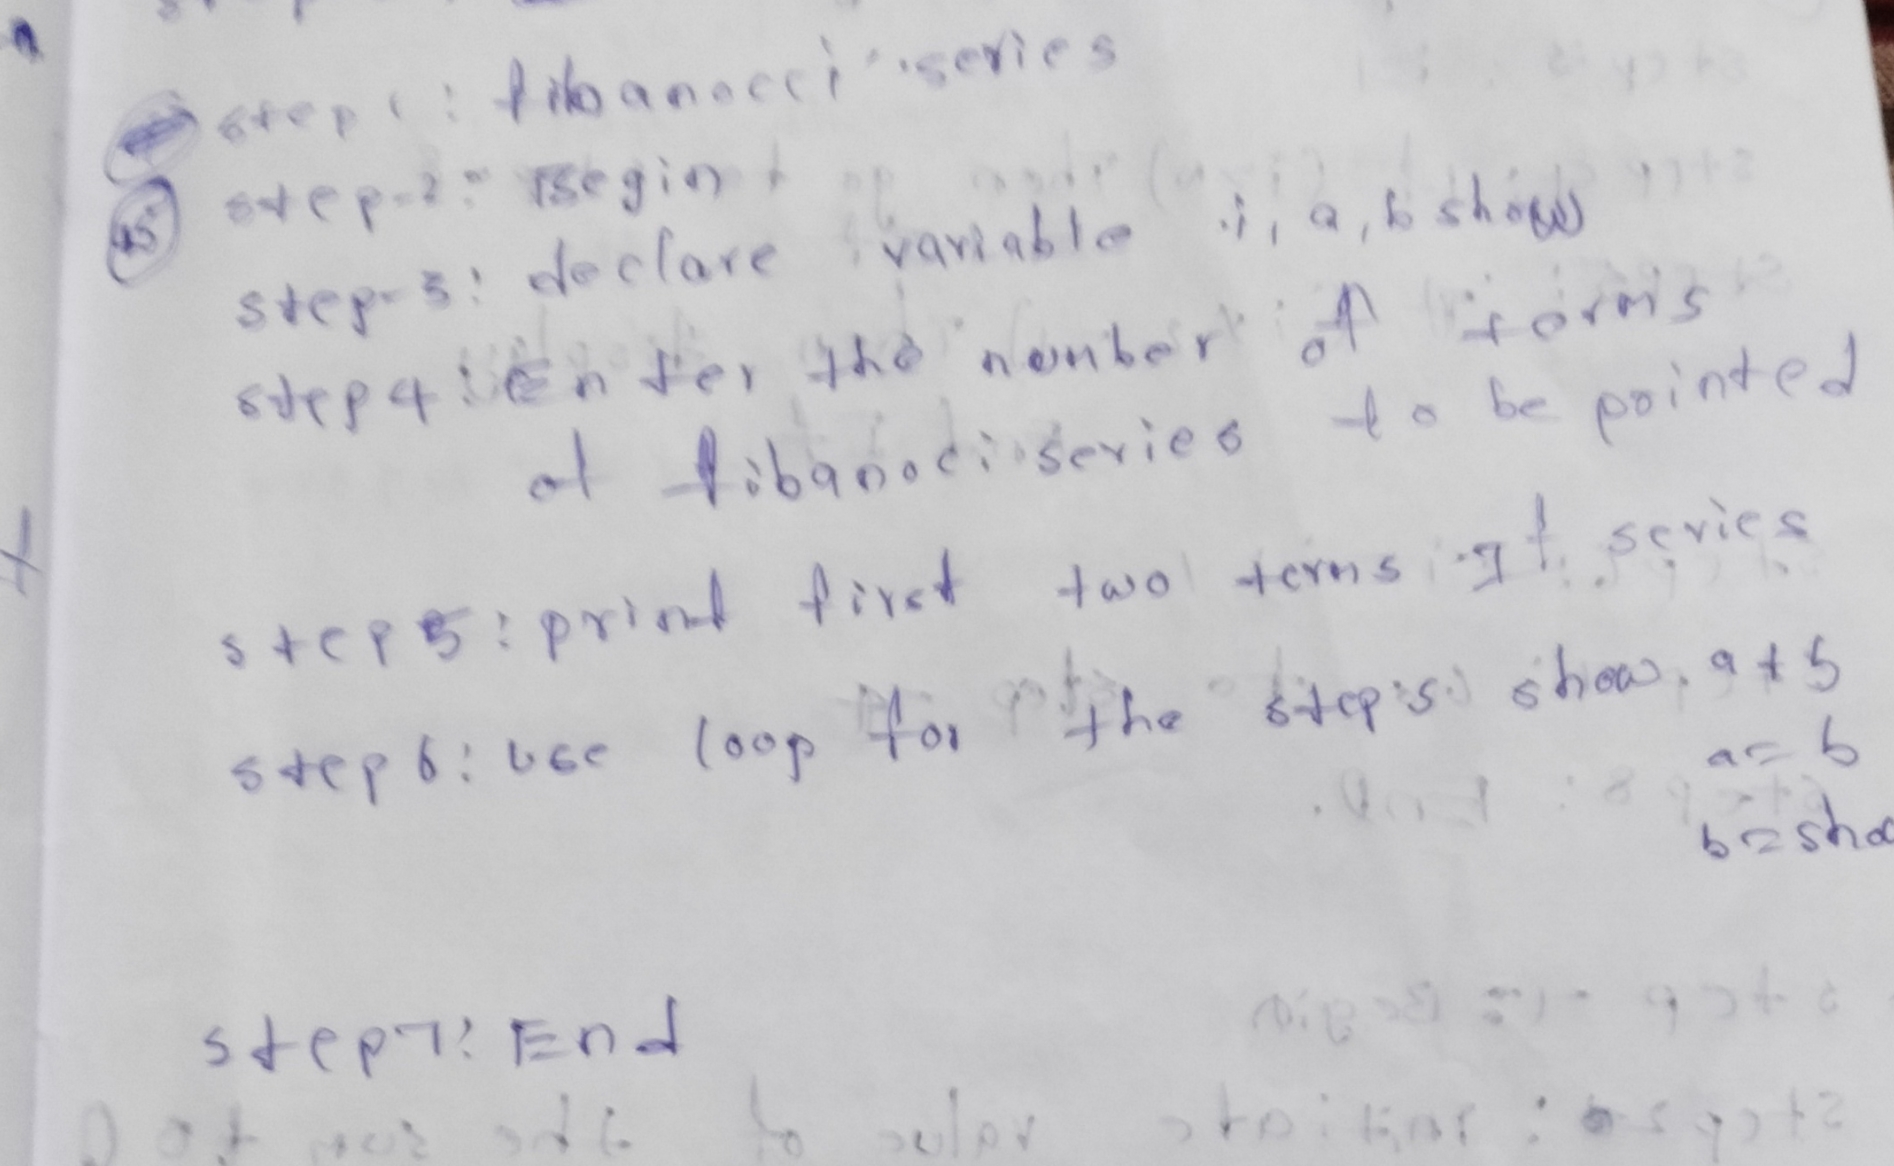 step 1: fibanocci series
step-2: Begin
15 step-3: declare variable i, a, b show
step 4: Enter the number of terms
of fibanoci series to be pointed
step 5: print first two terms of series
step 6: use loop for the step's show. a+b
a=b
b=sho
step 7: End